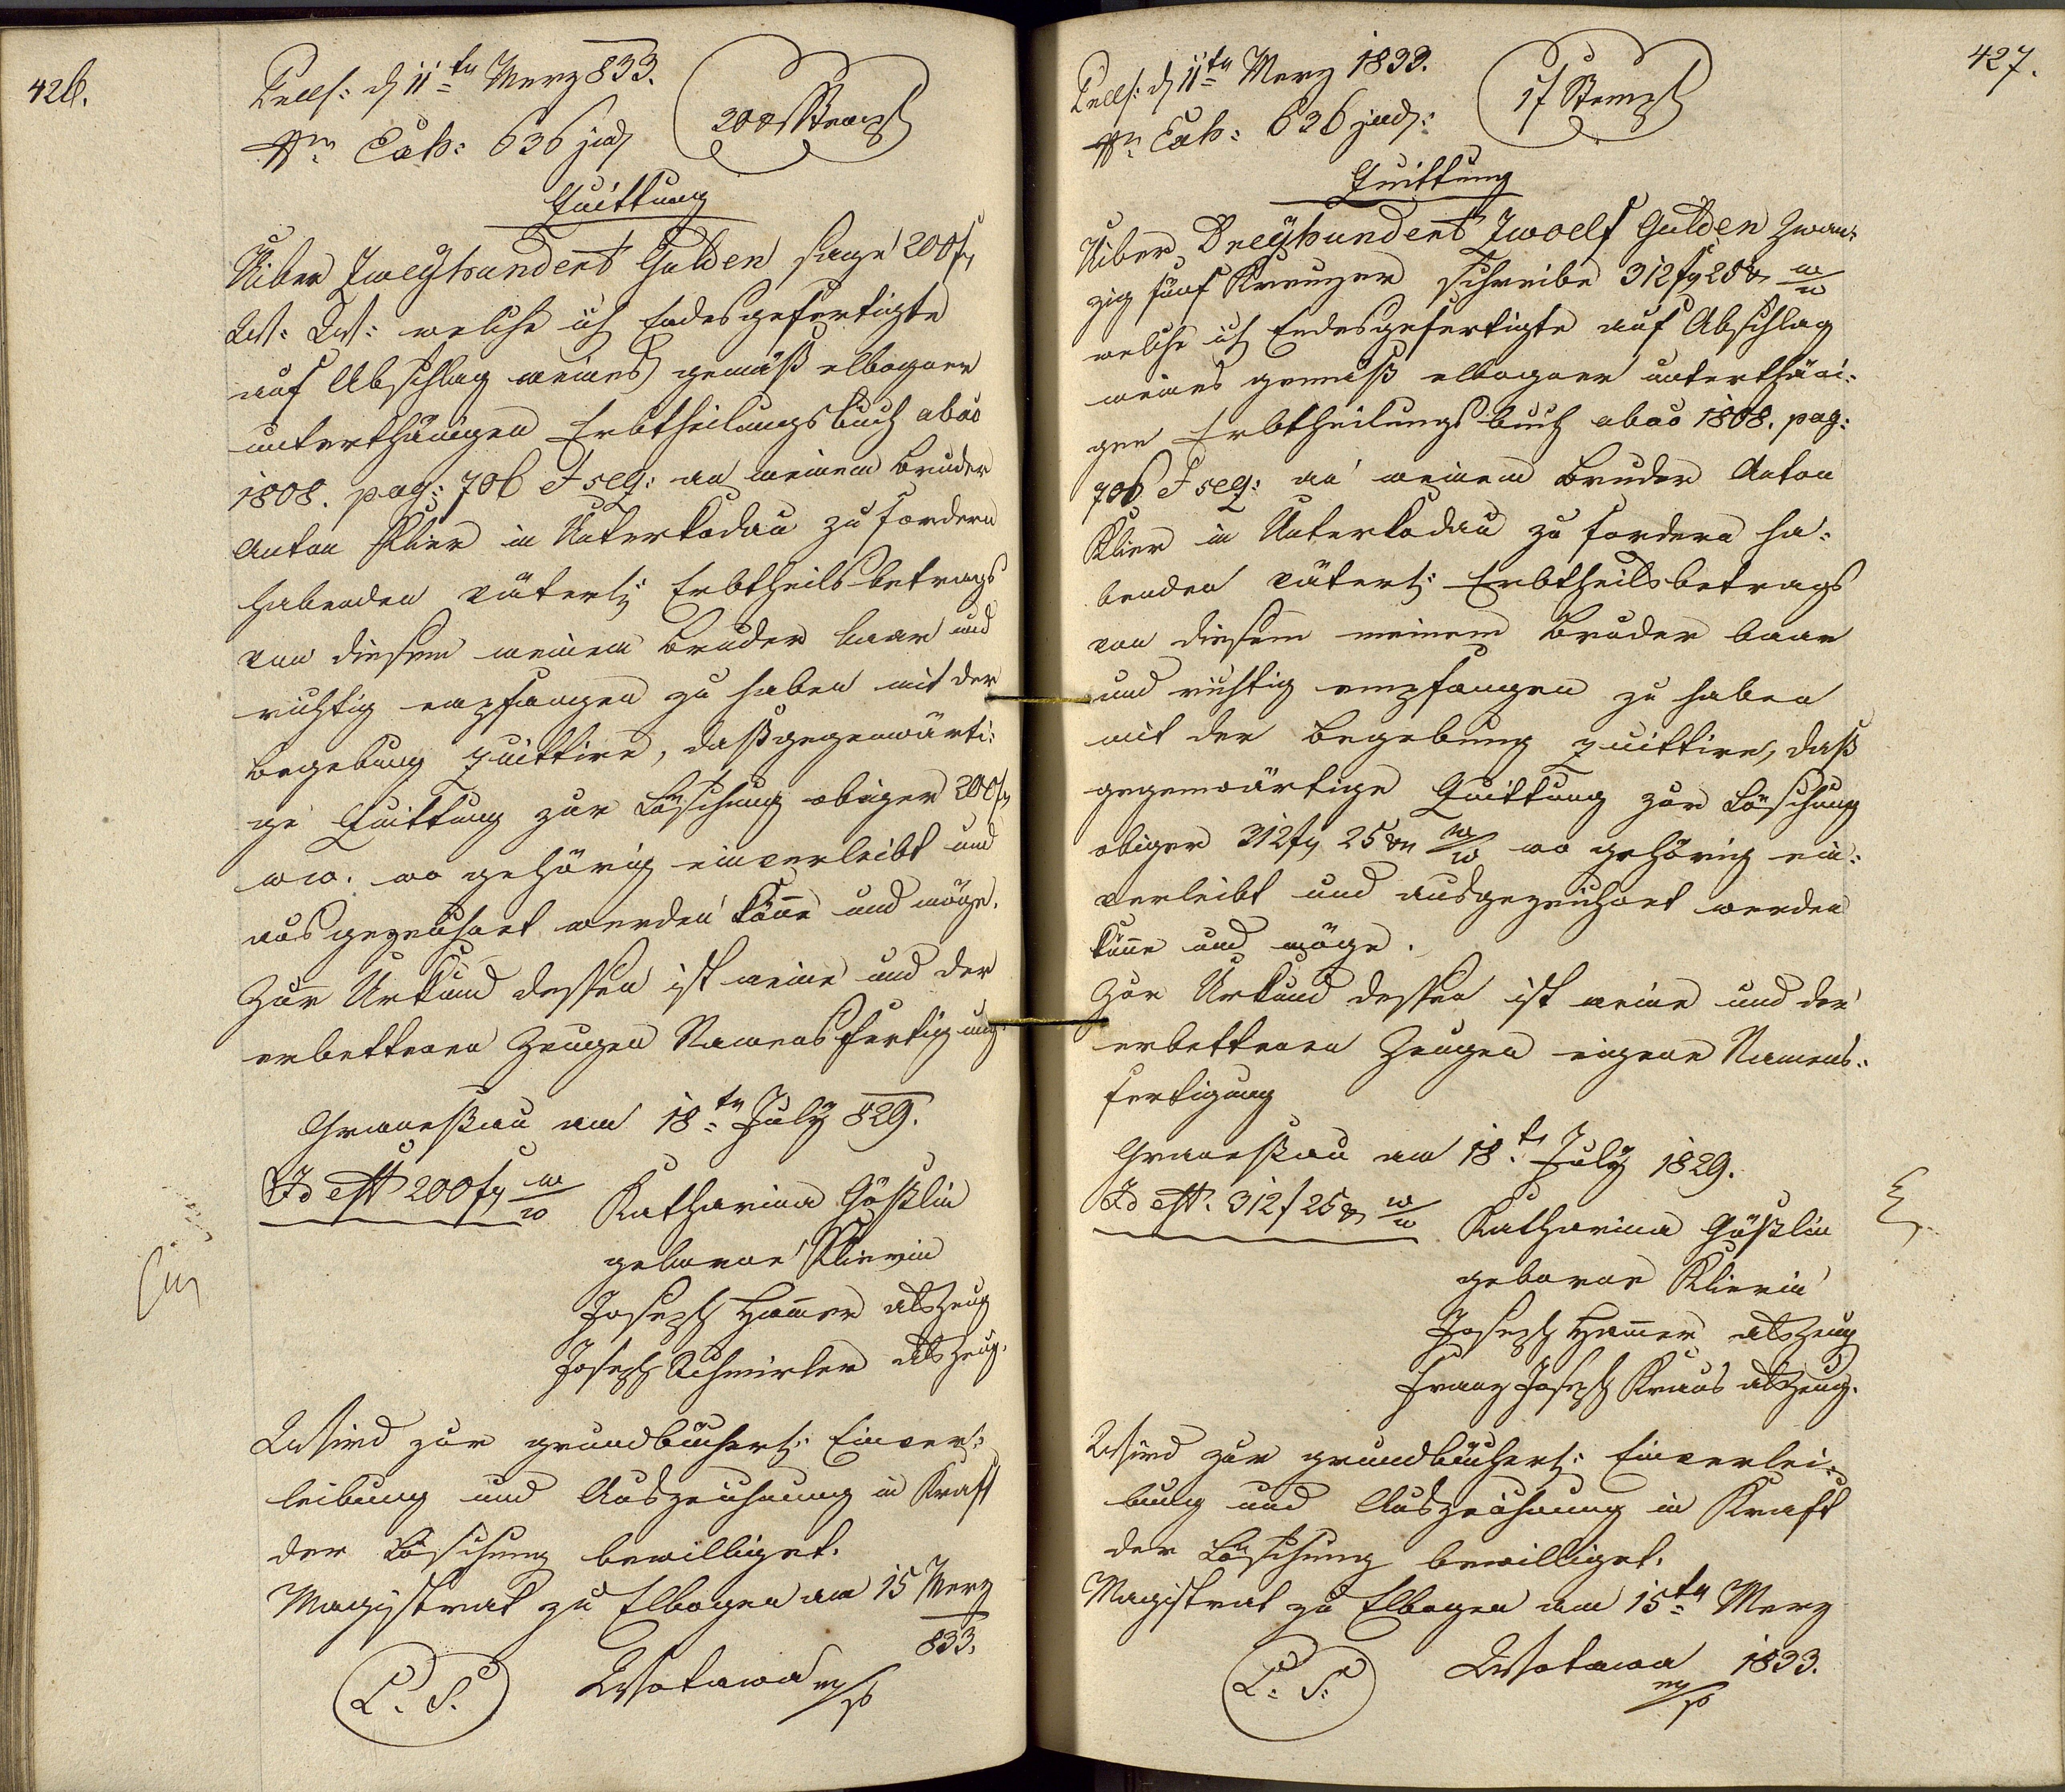 426.
Præs: d 11ten Merz 833.
Nro Exh: 636 jud
20 xr Stempl
Quittung
Uiber Zweyhundert Gulden sage 200 f
W: W: welche ich Endesgefertigte
auf Abschlag meines gemäß elbogner
unterthänigen Erbtheilungsbuch abao
1808. pag: 706 et seq: an meinem Bruder
Anton Klier in Unterkodau zu fordern
habenden väterl: Erbtheilsbetrags
von diesem meinem Bruder baar und
richtig empfangen zu haben mit der
Begebung quittire, daß gegenwärti:
ge Quittung zur Löschung obiger 200 f
WW. wo gehörig einverleibt und
ausgezeichnet werden könne und möge.
Zur Urkund dessen ist meine und der
erbettenen Zeugen Namensfertigung.
Granesau am 18ten July 829.
Id est 200 f W/W
Katharina Gößlin
geborne Klierin
Joseph Hammer als Zeug
Joseph Schmirler als Zeug.
Wird zur grundbücherl: Einver:
leibung und Auszeichnung in Kraft
der Löschung bewilliget.
Magistrat zu Elbogen am 15 Merz
833.
L. S.
Wotawa m/p
427.
Præs: d 11ten Merz 1833.
Nro Exh: 636 jud:
1 f Stempl
Quittung
Uiber Dreyhundert Zwoelf Gulden Zwan:
zig fünf Kreuzer schreibe 312 f 25 xr W/W
welche ich Endesgefertigte auf Abschlag
meines gemäß elbogner unterthäni:
gen Erbtheilungsbuch abao 1808. pag:
706 et seq: an meinem Bruder Anton
Klier in Unterkodau zu fordern ha:
benden väterl: Erbtheilsbetrags
von diesem meinem Bruder baar
und richtig empfangen zu haben
mit der Begebung quittire, daß
gegenwärtige Quittung zur Löschung
obiger 312 f 25 xr W/W wo gehörig ein:
verleibt und ausgezeichnet werden
könne und möge.
Zur Urkund dessen ist meine und der
erbettenen Zeugen eigene Namens:
fertigung
Granesau am 18t July 1829.
Id est. 312 f 25 xr W/W
Katharina Gößlin
geborne Klierin
Joseph Hammer als Zeug
Franz Joseph Kraus als Zeug.
Wird zur grundbücherl: Einverlei:
bung und Auszeichnung in Kraft
der Löschung bewilliget.
Magistrat zu Elbogen am 15ten Merz
1833.
L: S:
Wotawa m/p